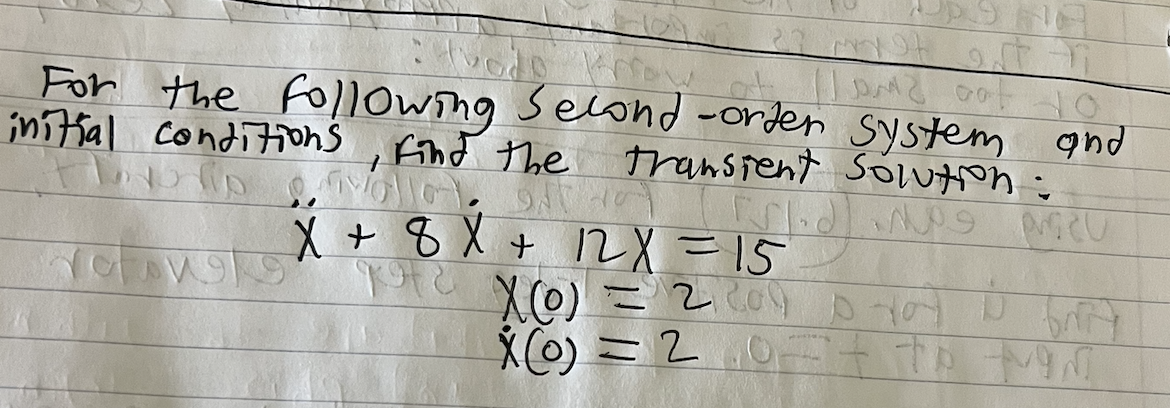 For the following second-order system and
initial conditions, find the transient solution:
Ẍ + 8Ẋ + 12X = 15
X(0) = 2
Ẋ(0) = 2